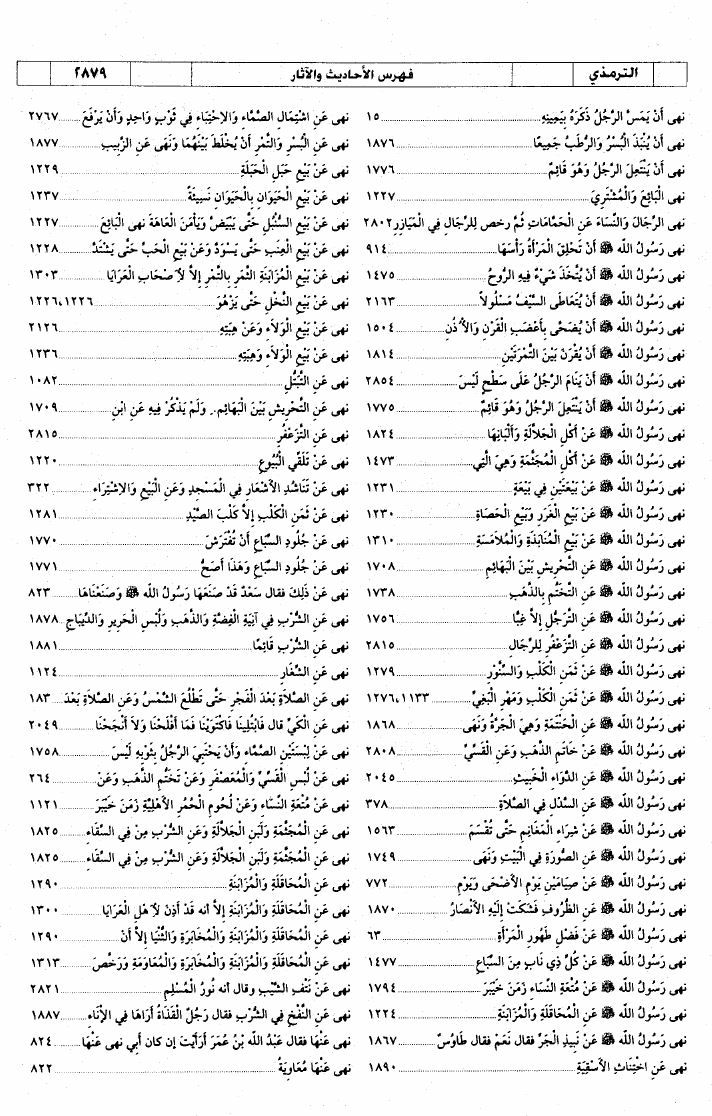 الترمذي
فهرس الأحاديث والآثار
٢٨٧٩
نهى أَنْ يَمَسَّ الرَّجُلُ ذَكَرَهُ بِيَمِينِهِ ١٥
نهى أَنْ يُنْبَذَ الْبُسْرُ وَالرُّطَبُ جَمِيعًا ١٨٧٦
نهى أَنْ يَنْتَعِلَ الرَّجُلُ وَهُوَ قَائِمٌ ١٧٧٦
نهى الْبَائِعَ وَالْمُشْتَرِيَ ١٢٢٧
نهى الرِّجَالَ وَالنِّسَاءَ عَنِ الْحَمَّامَاتِ ثُمَّ رخص لِلرِّجَالِ في الْمَيَازِرِ ٢٨٠٢
نهى رَسُولُ الله ﷺ أَنْ تَحْلِقَ الْمَرْأَةُ رَأْسَهَا ٩١٤
نهى رَسُولُ الله ﷺ أَنْ يُتَّخَذَ شَيْءٌ فِيهِ الرُّوحُ ١٤٧٥
نهى رَسُولُ الله ﷺ أَنْ يُتَعَاطَى السَّيْفُ مَسْلُولاً ٢١٦٣
نهى رَسُولُ الله ﷺ أَنْ يُضَحَّى بِأَعْضَبِ الْقَرْنِ وَالأُذُنِ ١٥٠٤
نهى رَسُولُ الله ﷺ أَنْ يُقْرَنَ بَيْنَ التَّمْرَتَيْنِ ١٨١٤
نهى رَسُولُ الله ﷺ أَنْ يَنَامَ الرَّجُلُ عَلَى سَطْحٍ لَيْسَ ٢٨٥٤
نهى رَسُولُ الله ﷺ أَنْ يَنْتَعِلَ الرَّجُلُ وَهُوَ قَائِمٌ ١٧٧٥
نهى رَسُولُ الله ﷺ عَنْ أَكْلِ الْجَلاَّلَةِ وَأَلْبَانِهَا ١٨٢٤
نهى رَسُولُ الله ﷺ عَنْ أَكْلِ الْمُجَثَّمَةِ وَهِيَ الَّتِي ١٤٧٣
نهى رَسُولُ الله ﷺ عَنْ بَيْعَتَيْنِ فِي بَيْعَةٍ ١٢٣١
نهى رَسُولُ الله ﷺ عَنْ بَيْعِ الْغَرَرِ وَبَيْعِ الْحَصَاةِ ١٢٣٠
نهى رَسُولُ الله ﷺ عَنْ بَيْعِ الْمُنَابَذَةِ وَالْمُلاَمَسَةِ ١٣١٠
نهى رَسُولُ الله ﷺ عَنِ التَّحْرِيشِ بَيْنَ الْبَهَائِمِ ١٧٠٨
نهى رَسُولُ الله ﷺ عَنِ التَّخَتُّمِ بِالذَّهَبِ ١٧٣٨
نهى رَسُولُ الله ﷺ عَنِ التَّرَجُّلِ إِلاَّ غِبًّا ١٧٥٦
نهى رَسُولُ الله ﷺ عَنِ التَّزَعْفُرِ لِلرِّجَالِ ٢٨١٥
نهى رَسُولُ الله ﷺ عَنْ ثَمَنِ الْكَلْبِ وَالسِّنَّوْرِ ١٢٧٩
نهى رَسُولُ الله ﷺ عَنْ ثَمَنِ الْكَلْبِ وَمَهْرِ الْبَغِيِّ ١١٣٣، ١٢٧٦
نهى رَسُولُ الله ﷺ عَنِ الْحَنْتَمَةِ وَهِيَ الْجَرَّةُ وَنَهَى ١٨٦٨
نهى رَسُولُ الله ﷺ عَنْ خَاتَمِ الذَّهَبِ وَعَنِ الْقَسِّيِّ ٢٨٠٨
نهى رَسُولُ الله ﷺ عَنِ الدَّوَاءِ الْخَبِيثِ ٢٠٤٥
نهى رَسُولُ الله ﷺ عَنِ السَّدْلِ فِي الصَّلاَةِ ٣٧٨
نهى رَسُولُ الله ﷺ عَنْ شِرَاءِ الْمَغَانِمِ حَتَّى تُقْسَمَ ١٥٦٣
نهى رَسُولُ الله ﷺ عَنِ الصُّورَةِ فِي الْبَيْتِ وَنَهَى ١٧٤٩
نهى رَسُولُ الله ﷺ عَنْ صِيَامَيْنِ يَوْمِ الأَضْحَى وَيَوْمِ ٧٧٢
نهى رَسُولُ الله ﷺ عَنِ الظُّرُوفِ فَشَكَتْ إِلَيْهِ الأَنْصَارُ ١٨٧٠
نهى رَسُولُ الله ﷺ عَنْ فَضْلِ طَهُورِ الْمَرْأَةِ ٦٣
نهى رَسُولُ الله ﷺ عَنْ كُلِّ ذِي نَابٍ مِنَ السِّبَاعِ ١٤٧٧
نهى رَسُولُ الله ﷺ عَنْ مُتْعَةِ النِّسَاءِ زَمَنَ خَيْبَرَ ١٧٩٤
نهى رَسُولُ الله ﷺ عَنِ الْمُحَاقَلَةِ وَالْمُزَابَنَةِ ١٢٢٤
نهى رَسُولُ الله ﷺ عَنْ نَبِيذِ الْجَرِّ فقال نَعَمْ فقال طَاوُسٌ ١٨٦٧
نهى عَنِ اخْتِنَاثِ الأَسْقِيَةِ ١٨٩٠
نهى عَنِ اشْتِمَالِ الصَّمَّاءِ وَالاِحْتِبَاءِ فِي ثَوْبٍ وَاحِدٍ وَأَنْ يَرْفَعَ ٢٧٦٧
نهى عَنِ الْبُسْرِ وَالتَّمْرِ أَنْ يُخْلَطَ بَيْنَهُمَا وَنَهَى عَنِ الزَّبِيبِ ١٨٧٧
نهى عَنْ بَيْعِ حَبَلِ الْحَبَلَةِ ١٢٢٩
نهى عَنْ بَيْعِ الْحَيَوَانِ بِالْحَيَوَانِ نَسِيئَةً ١٢٣٧
نهى عَنْ بَيْعِ السُّنْبُلِ حَتَّى يَبْيَضَّ وَيَأْمَنَ الْعَاهَةَ نهى الْبَائِعَ ١٢٢٧
نهى عَنْ بَيْعِ الْعِنَبِ حَتَّى يَسْوَدَّ وَعَنْ بَيْعِ الْحَبِّ حَتَّى يَشْتَدَّ ١٢٢٨
نهى عَنْ بَيْعِ الْمُزَابَنَةِ الثَّمَرِ بِالتَّمْرِ إِلاَّ لأَصْحَابِ الْعَرَايَا ١٣٠٣
نهى عَنْ بَيْعِ النَّخْلِ حَتَّى يَزْهُوَ ١٢٢٦، ١٢٢٦
نهى عَنْ بَيْعِ الْوَلاَءِ وَعَنْ هِبَتِهِ ٢١٢٦
نهى عَنْ بَيْعِ الْوَلاَءِ وَهِبَتِهِ ١٢٣٦
نهى عَنِ التَّبَتُّلِ ١٠٨٢
نهى عَنِ التَّحْرِيشِ بَيْنَ الْبَهَائِمِ. وَلَمْ يَذْكُرْ فِيهِ عَنِ ابْنِ ١٧٠٩
نهى عَنِ التَّزَعْفُرِ ٢٨١٥
نهى عَنْ تَلَقِّي الْبُيُوعِ ١٢٢٠
نهى عَنْ تَنَاشُدِ الأَشْعَارِ فِي الْمَسْجِدِ وَعَنِ الْبَيْعِ وَالاِشْتِرَاءِ ٣٢٢
نهى عَنْ ثَمَنِ الْكَلْبِ إِلاَّ كَلْبَ الصَّيْدِ ١٢٨١
نهى عَنْ جُلُودِ السِّبَاعِ أَنْ تُفْتَرَشَ ١٧٧٠
نهى عَنْ جُلُودِ السِّبَاعِ وَهَذَا أَصَحُّ ١٧٧١
نهى عَنْ ذَلِكَ فقال سَعْدٌ قَدْ صَنَعَهَا رَسُولُ الله ﷺ وَصَنَعْنَاهَا ٨٢٣
نهى عَنِ الشُّرْبِ فِي آنِيَةِ الْفِضَّةِ وَالذَّهَبِ وَلُبْسِ الْحَرِيرِ وَالدِّيبَاجِ ١٨٧٨
نهى عَنِ الشُّرْبِ قَائِمًا ١٨٨١
نهى عَنِ الشِّغَارِ ١١٢٤
نهى عَنِ الصَّلاَةِ بَعْدَ الْفَجْرِ حَتَّى تَطْلُعَ الشَّمْسُ وَعَنِ الصَّلاَةِ بَعْدَ ١٨٣
نهى عَنِ الْكَيِّ قال فَابْتُلِينَا فَاكْتَوَيْنَا فَمَا أَفْلَحْنَا وَلاَ أَنْجَحْنَا ٢٠٤٩
نهى عَنْ لِبْسَتَيْنِ الصَّمَّاءِ وَأَنْ يَحْتَبِيَ الرَّجُلُ بِثَوْبِهِ لَيْسَ ١٧٥٨
نهى عَنْ لُبْسِ الْقَسِّيِّ وَالْمُعَصْفَرِ وَعَنْ تَخَتُّمِ الذَّهَبِ وَعَنْ ٢٦٤
نهى عَنْ مُتْعَةِ النِّسَاءِ وَعَنْ لُحُومِ الْحُمُرِ الأَهْلِيَّةِ زَمَنَ خَيْبَرَ ١١٢١
نهى عَنِ الْمُجَثَّمَةِ وَلَبَنِ الْجَلاَّلَةِ وَعَنِ الشُّرْبِ مِنْ فِي السِّقَاءِ ١٨٢٥
نهى عَنِ الْمُجَثَّمَةِ وَلَبَنِ الْجَلاَّلَةِ وَعَنِ الشُّرْبِ مِنْ فِي السِّقَاءِ ١٨٢٥
نهى عَنِ الْمُحَاقَلَةِ وَالْمُزَابَنَةِ ١٢٩٠
نهى عَنِ الْمُحَاقَلَةِ وَالْمُزَابَنَةِ إِلاَّ أنه قَدْ أَذِنَ لأَهْلِ الْعَرَايَا ١٣٠٠
نهى عَنِ الْمُحَاقَلَةِ وَالْمُزَابَنَةِ وَالْمُخَابَرَةِ وَالثُّنْيَا إِلاَّ أَنْ ١٢٩٠
نهى عَنِ الْمُحَاقَلَةِ وَالْمُزَابَنَةِ وَالْمُخَابَرَةِ وَالْمُعَاوَمَةِ وَرَخَّصَ ١٣١٣
نهى عَنْ نَتْفِ الشَّيْبِ وقال أنه نُورُ الْمُسْلِمِ ٢٨٢١
نهى عَنِ النَّفْخِ فِي الشُّرْبِ فقال رَجُلٌ الْقَذَاةُ أَرَاهَا فِي الإِنَاءِ ١٨٨٧
نهى عَنْهَا فقال عَبْدُ الله بْنُ عُمَرَ أَرَأَيْتَ إن كان أبي نهى عَنْهَا ٨٢٤
نهى عَنْهَا مُعَاوِيَةُ ٨٢٢